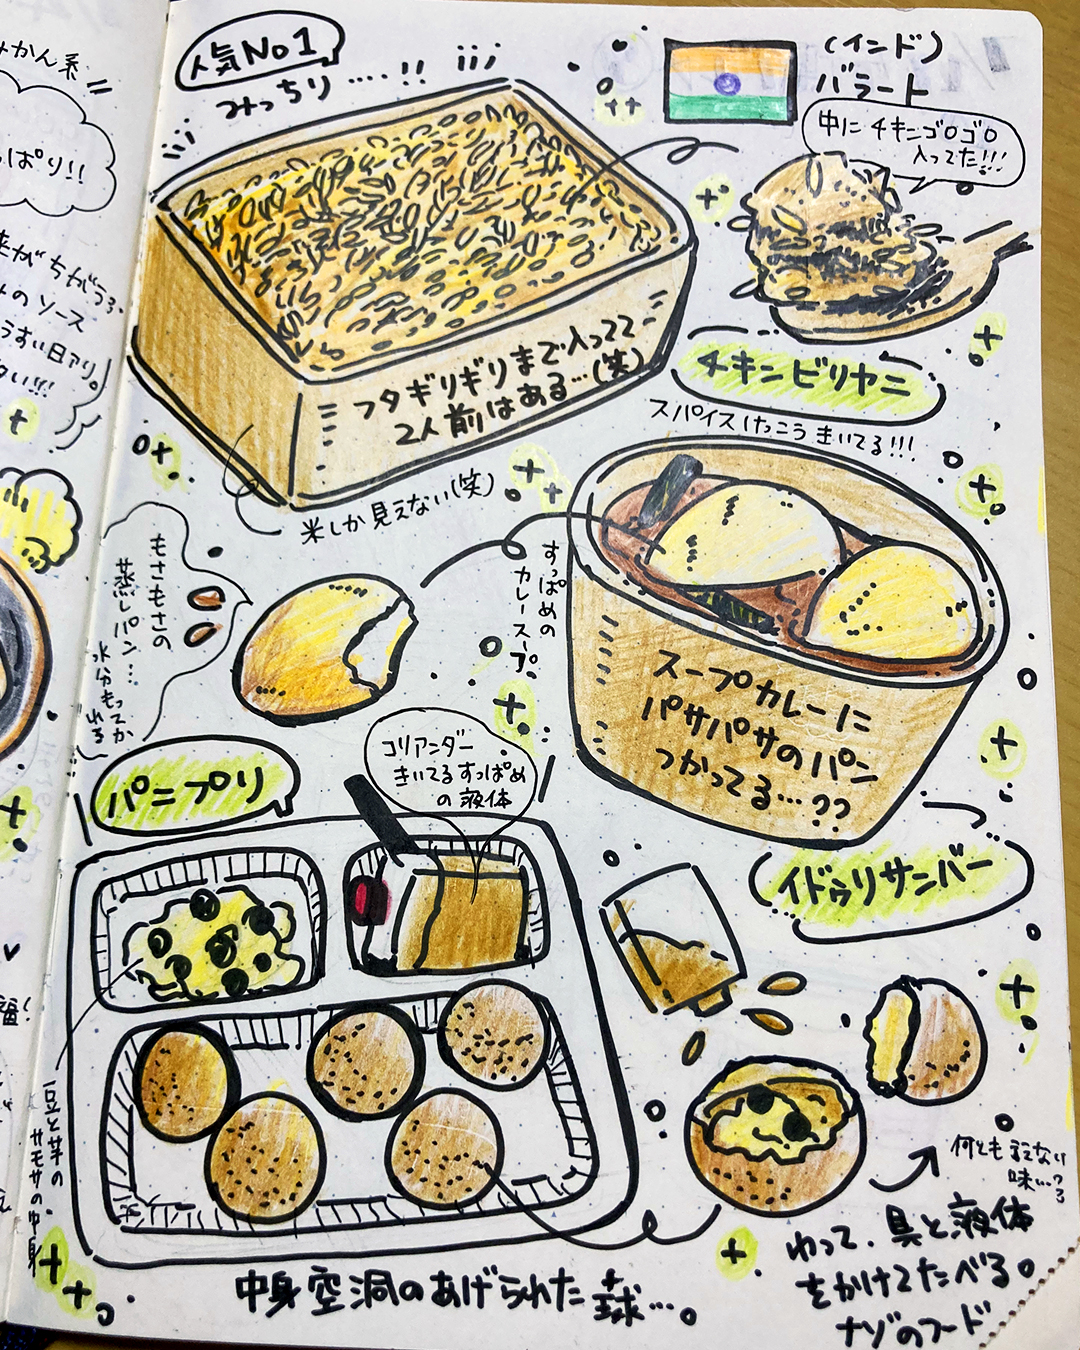 みかん系
ぱり!!
ちがうう
のソース
うすい日アリ。
人気No1
みっちり....!!
(インド)
バラート
中にチキンゴロゴロ
入ってた!!!
フタギリギリまで入ってて
2人前はある…(笑)
米しか見えない(笑)
チキンビリヤニ
スパイスけっこうきいてる!!!
もさもさの
蒸しパン…
水分もってか
れる
すっぱめの
カレースープ。
スープカレーに
パサパサのパン
つかってる…??
イドゥリサンバー
パニプリ
コリアンダー
きいてるすっぱめ
の液体
豆と芋の
サモサの中身
中身空洞のあげられた球…。
何とも言えない
味…?
わって、具と液体
をかけてたべる。
ナゾのフード